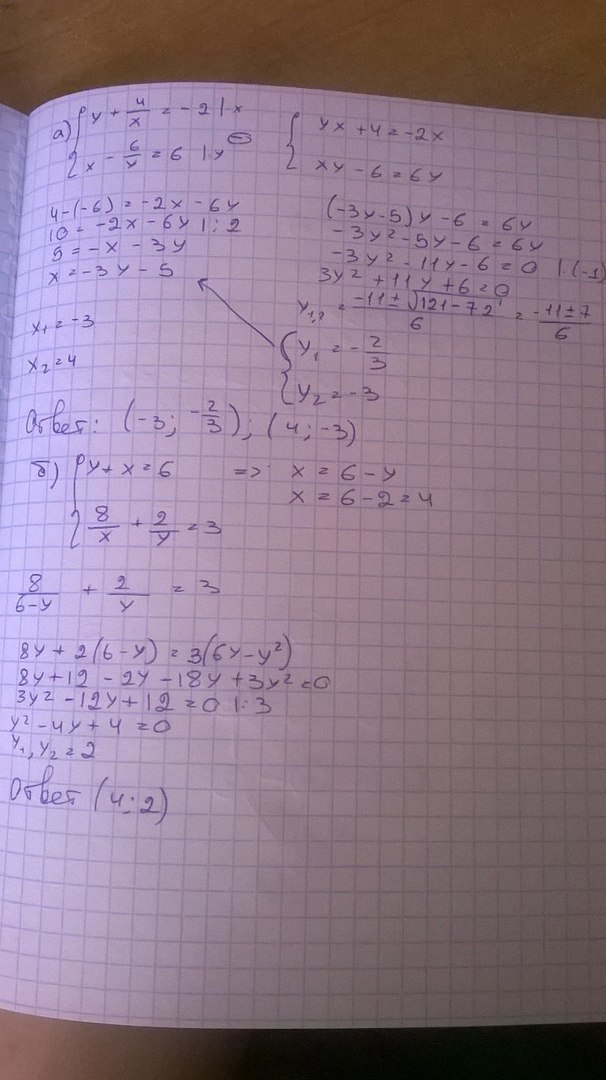 а) { y + 4/x = -2 | · x
{ x - 6/y = 6 | · y ⊖
{ yx + 4 = -2x
{ xy - 6 = 6y
4 - (-6) = -2x - 6y
10 = -2x - 6y | : 2
5 = -x - 3y
x = -3y - 5
x₁ = -3
x₂ = 4
(-3y - 5)y - 6 = 6y
-3y² - 5y - 6 = 6y
-3y² - 11y - 6 = 0 | · (-1)
3y² + 11y + 6 = 0
y₁,₂ = (-11 ± √(121 - 72))/6 = (-11 ± 7)/6
{ y₁ = -2/3
{ y₂ = -3
Ответ: (-3; -2/3); (4; -3)
б) { y + x = 6 => x = 6 - y
x = 6 - 2 = 4
{ 8/x + 2/y = 3
8/(6-y) + 2/y = 3
8y + 2(6 - y) = 3(6y - y²)
8y + 12 - 2y - 18y + 3y² = 0
3y² - 12y + 12 = 0 | : 3
y² - 4y + 4 = 0
y₁, y₂ = 2
Ответ (4; 2)